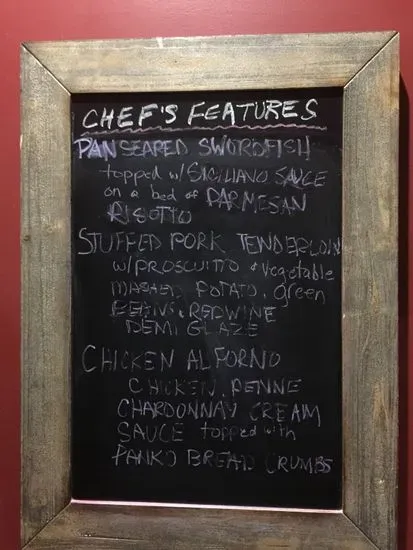 CHEF'S FEATURES
PAN SEARED SWORDFISH
topped w/ SICILIANO SAUCE
on a bed of PARMESAN
RISOTTO
STUFFED PORK TENDERLOIN
w/ PROSCUITTO & vegetable
MASHED POTATO, green
BEANS & REDWINE
DEMI GLAZE
CHICKEN AL FORNO
CHICKEN, PENNE
CHARDONNAY CREAM
SAUCE topped with
PANKO BREAD CRUMBS